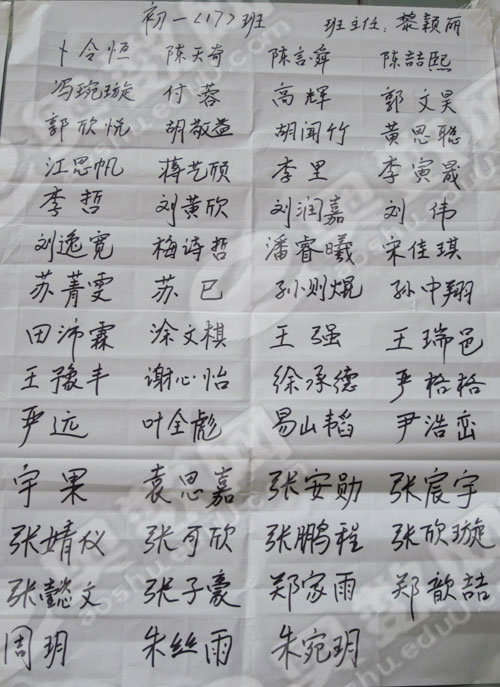 初一(17)班 班主任：黎颖丽
卜令恒 陈天奇 陈言舜 陈喆熙
冯琬璇 付蓉 高辉 郭文昊
郭欣悦 胡敬益 胡闻竹 黄思聪
江思帆 蒋艺颀 李里 李寅晟
李哲 刘黄欣 刘润嘉 刘伟
刘逸宽 梅诗哲 潘睿曦 宋佳琪
苏菁雯 苏巳 孙则焜 孙中翔
田沛霖 涂文棋 王强 王瑞邑
王豫丰 谢心怡 徐承德 严格格
严远 叶全彪 易山韬 尹浩峦
宇果 袁思嘉 张安勋 张宸宇
张婧仪 张可欣 张鹏程 张欣璇
张懿文 张子豪 郑家雨 郑歆喆
周玥 朱丝雨 朱宛玥